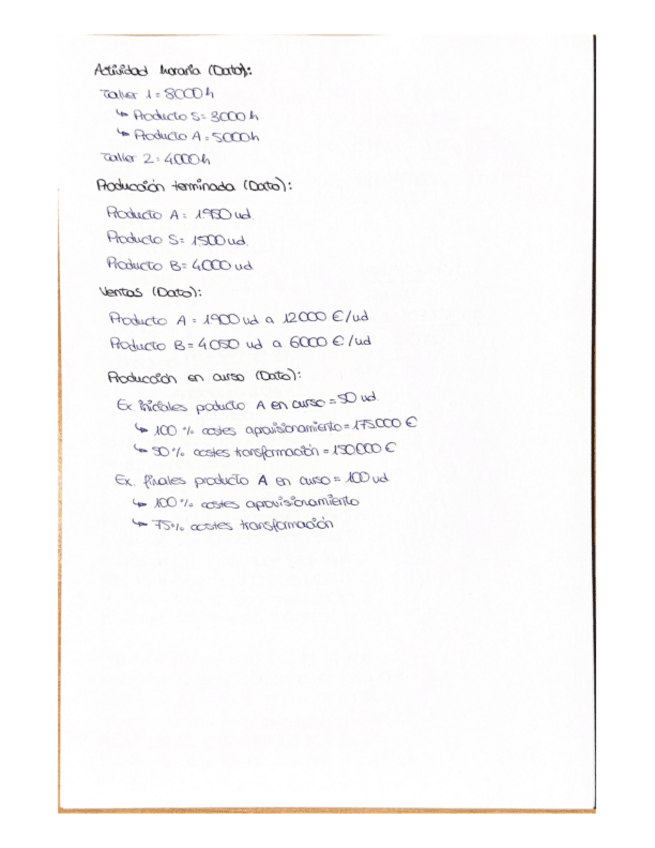 Actividad horaria (Dato):
Taller 1 = 8000 h
↳ Producto S = 3000 h
↳ Producto A = 5000 h
Taller 2 = 4000 h
Producción terminada (Dato):
Producto A = 1950 ud.
Producto S = 1500 ud.
Producto B = 4000 ud
Ventas (Dato):
Producto A = 1900 ud a 12000 €/ud
Producto B = 4050 ud a 6000 €/ud
Producción en curso (Dato):
Ex. iniciales producto A en curso = 50 ud.
↳ 100 % costes aprovisionamiento = 175.000 €
↳ 50 % costes transformación = 150.000 €
Ex. finales producto A en curso = 100 ud
↳ 100 % costes aprovisionamiento
↳ 75 % costes transformación